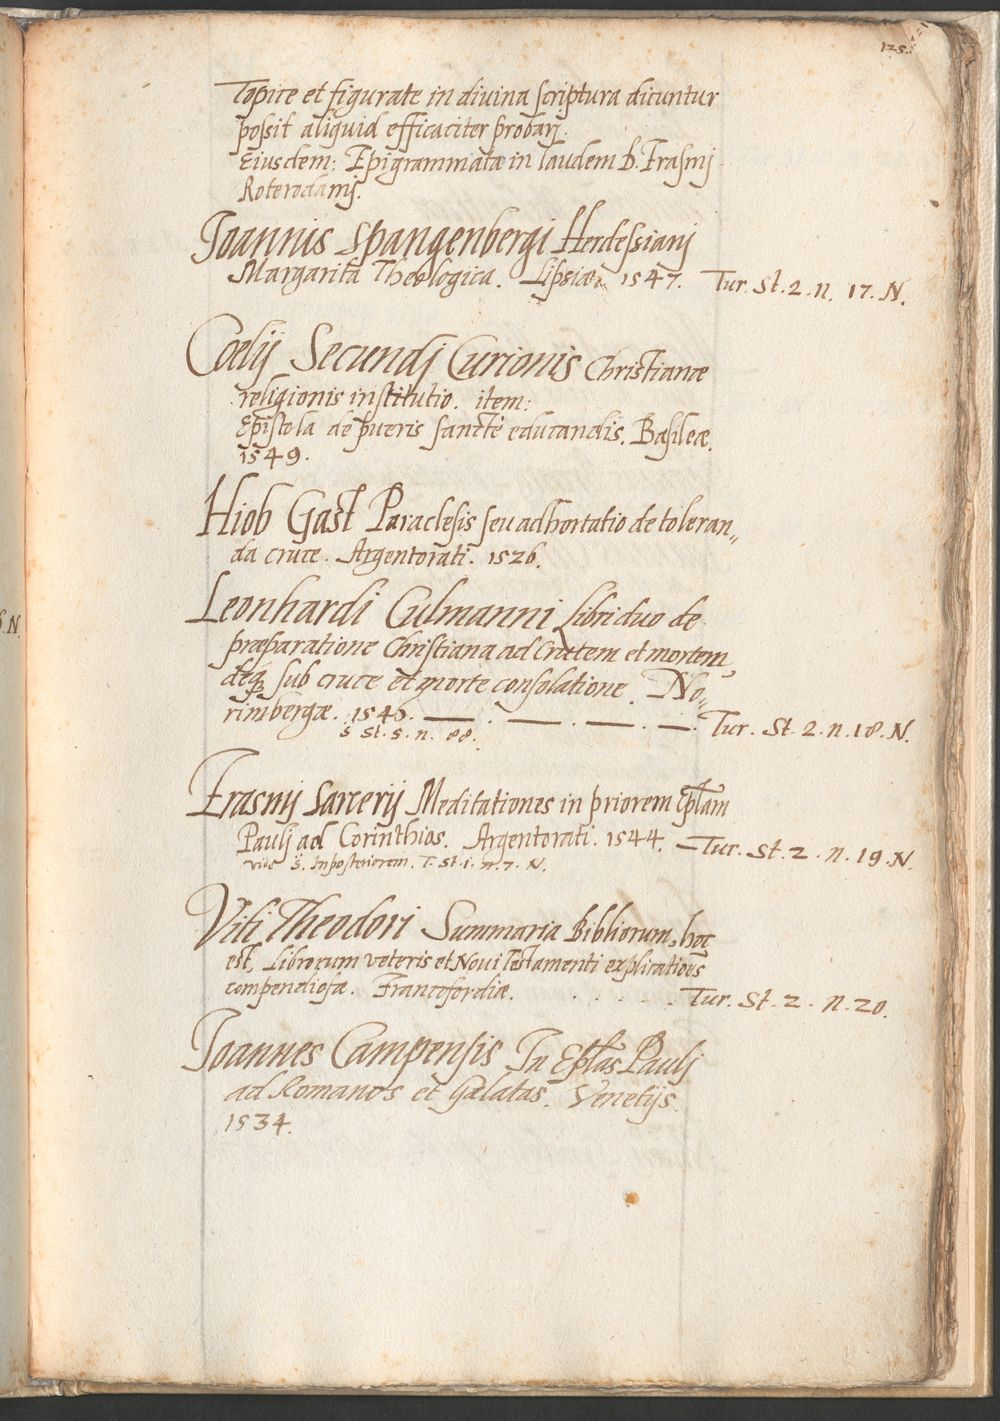 125.
Topice et figurate in divina scriptura dicuntur
possit aliquid efficaciter probarj.
Eiusdem: Epigrammata in laudem D. Erasmj
Roterodamj.
Joannis Spangenbergi Herdessianj
Margarita Theologica. Lipsiae. 1547. Tur. St. 2. n. 17. N.
Coelij Secundj Curionis Christianæ
religionis institutio. item:
Epistola de pueris sanctè educandis. Basileæ.
1549.
Hiob Gast Paraclesis seu adhortatio de toleran„
da cruce. Argentorati. 1526.
Leonhardi Culmanni Libri duo de
præparatione Christiana ad Crucem et mortem,
deq3 sub cruce et morte consolatione. No„
rimbergæ. 1546. — . — . — . — . Tur. St. 2. n. 18. N.
S St. 5. n. 88.
Erasmj Sarcerij Meditationes in priorem Eplam
Paulj ad Corinthios. Argentorati. 1544. — Tur. St. 2. n. 19. N.
vide S. In posteriorem. T. St. 1. n. 7. N.
Viti Theodori Summaria Bibliorum, hoc
est, Librorum veteris et Noui Testamenti explicationes
compendiosæ. Francofordiæ. . . . . . Tur. St. 2. n. 20.
Joannes Campensis In Eplas Paulj
ad Romanos et Galatas. Venetijs.
1534.
N.